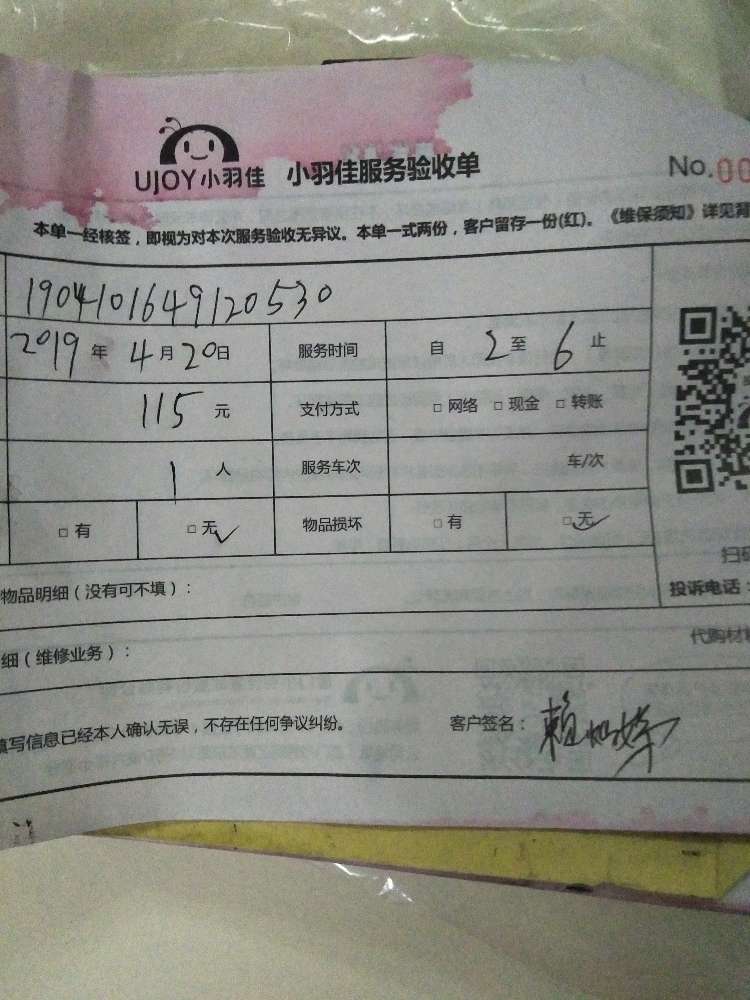 UJOY小羽佳 小羽佳服务验收单 No.00
本单一经核签，即视为对本次服务验收无异议。本单一式两份，客户留存一份(红)。《维保须知》详见背
1904101649120530
2019年4月20日 服务时间 自2至6止
115元 支付方式 □网络 □现金 □转账
1人 服务车次 车/次
□有 □无✓ 物品损坏 □有 □无✓
扫码
物品明细（没有可不填）： 投诉电话：
细（维修业务）： 代购材
填写信息已经本人确认无误，不存在任何争议纠纷。 客户签名：赖